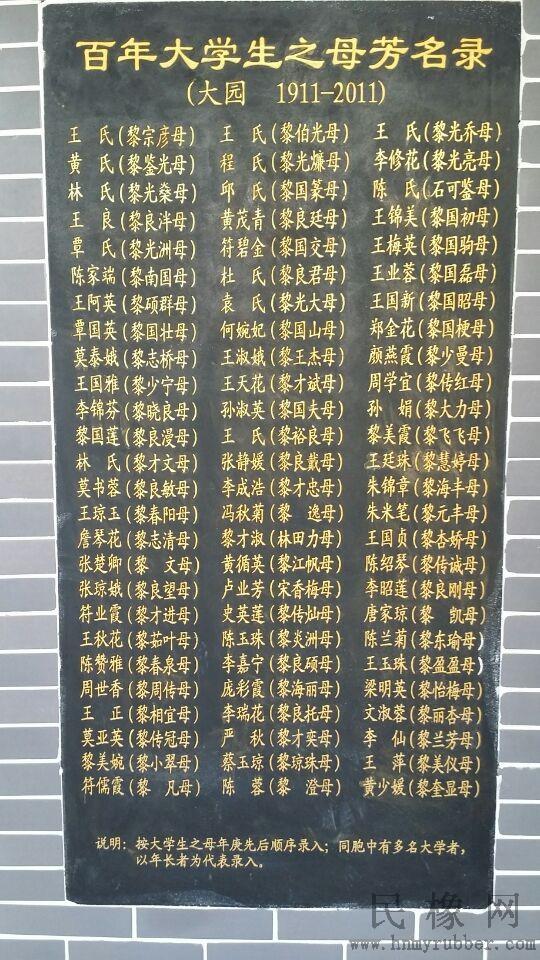 百年大学生之母芳名录
(大园 1911-2011)
王 氏(黎宗彦母) 王 氏(黎伯光母) 王 氏(黎光乔母)
黄 氏(黎鉴光母) 程 氏(黎光嫌母) 李修花(黎光亮母)
林 氏(黎光燊母) 邱 氏(黎国篆母) 陈 氏(石可鉴母)
王 良(黎良泮母) 黄茂青(黎良廷母) 王锦美(黎国初母)
覃 氏(黎光洲母) 符碧金(黎国交母) 王梅英(黎国驹母)
陈家端(黎南国母) 杜 氏(黎良君母) 王业蓉(黎国磊母)
王阿英(黎硕群母) 袁 氏(黎光大母) 王国新(黎国昭母)
覃国英(黎国壮母) 何婉妃(黎国山母) 郑金花(黎国梗母)
莫泰娥(黎志桥母) 王淑娥(黎王杰母) 颜燕霞(黎少曼母)
王国雅(黎少宁母) 王天花(黎才斌母) 周学宜(黎传红母)
李锦芬(黎晓良母) 孙淑英(黎国夫母) 孙 娟(黎大力母)
黎国莲(黎良漫母) 王 氏(黎裕良母) 黎美霞(黎飞飞母)
林 氏(黎才文母) 张静媛(黎良戴母) 王廷珠(黎慧婷母)
莫书蓉(黎良敏母) 李成浩(黎才忠母) 朱锦章(黎海丰母)
王琼玉(黎春阳母) 冯秋菊(黎 逸母) 朱米笔(黎元丰母)
詹琴花(黎志清母) 黎才淑(林田力母) 王国贞(黎杏娇母)
张楚卿(黎 文母) 黄循英(黎江帆母) 陈绍琴(黎传诚母)
张琼娥(黎良望母) 卢业芳(宋香梅母) 李昭莲(黎良刚母)
符业霞(黎才进母) 史英莲(黎传灿母) 唐家琼(黎 凯母)
王秋花(黎茹叶母) 陈玉珠(黎炎洲母) 陈兰菊(黎东瑜母)
陈赞雅(黎春泉母) 李嘉宁(黎良硕母) 王玉珠(黎盈盈母)
周世香(黎周传母) 庞彩霞(黎海丽母) 梁明英(黎怡梅母)
王 正(黎相宜母) 李瑞花(黎良托母) 文淑蓉(黎丽杏母)
莫亚英(黎传冠母) 严 秋(黎才奕母) 李 仙(黎兰芳母)
黎美婉(黎小翠母) 蔡玉琼(黎琼珠母) 王 萍(黎美仪母)
符儒霞(黎 凡母) 陈 蓉(黎 澄母) 黄少媛(黎奎显母)
说明：按大学生之母年庚先后顺序录入；同胞中有多名大学者，
以年长者为代表录入。
民橡网
www.hnmyrubber.com